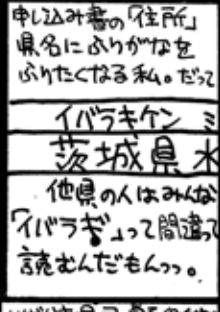 申し込み書の「住所」
県名にふりがなを
ふりたくなる私。だって
イバラキケン ミ
茨城県水
他県の人はみんな
「イバラギ」って間違って
読むんだもんっっ。